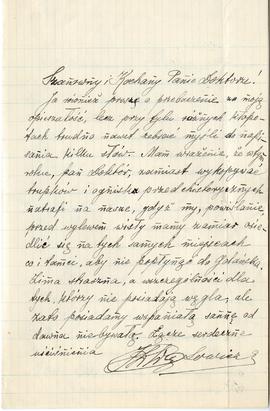 Szanowny i Kochany Panie Doktorze!
Ja również proszę o przebaczenie za moją
opieszałość, lecz przy tylu różnych kłopo-
tach trudno nawet zebrać myśli do napi-
sania kilku słów. Mam wrażenie, że
roku, pan Doktór, zamiast wykopywać
trupków i ogniska przedhistorycznych
natrafi na nasze, gdyż my, powiślanie
przed wylewem wisły mamy zamiar osie-
dlić się na tych samych miejscach
co i tamci, aby nie popłynąć do Gdańska.
Zima straszna, a w szczególności dla
tych, którzy nie posiadają węgla, ale
za to posiadamy wspaniałą sannę od
dawna niebywałą. Łączę serdeczne
uściśnienia